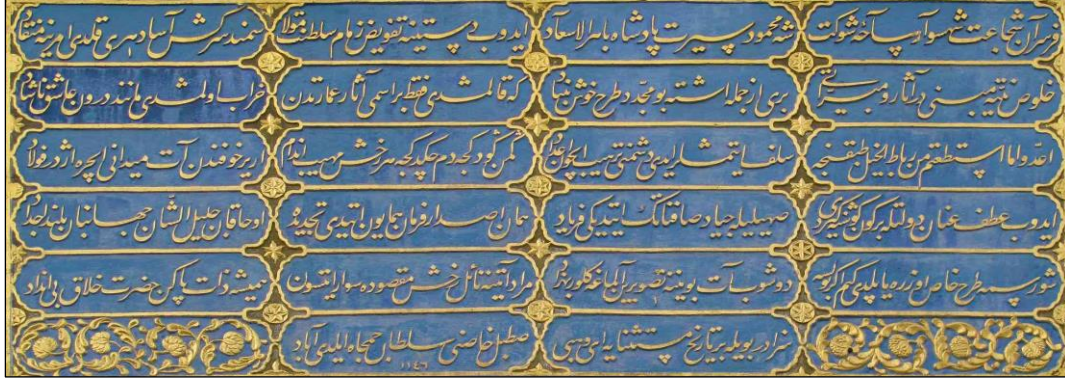 قهرمان شجاعت شهسوار ساحۀ شوکت شه محمود سیرت پادشاه ایدوب تفویض زمام سلطنت مولا سمند سرکش آسا دهری قلدی امرینه منقاد
خلوص نیت آثار و مبراتی بری از جمله اشته بو مجدد طرح خوش بنیاد که قالمشدی فقط بر اسمی آثار عمارتدن خراب اولمشدی مانند درون عاشق ناشاد
اعدوا ما استطعتم من رباط الخیل طبقنجه سلف ایتمشلر ایدی دشمنی ترهیب ایچون اعداد دم چکدکجه هر رخش مهیب اندام اریر خوفندن آت میدانی ایچره اژدر فولاد
ایدوب عطف عنان دولتله بر کون صهیلیله جیاد صافناتک ایتدیکی فریاد همان اصدار فرمان همایون ایتدی تجدیده او خاقان جلیل الشان جهانبان بلند اجداد
شو رسمه طرح خاص اوزره یاپلدی کیم دوشوب آت بوینینه تصویرین آلماغه کلور بهزاد مراد آتینه نائل رخش مقصوده سوار ایتسون همیشه ذات پاکن حضرت خلاق بی انداد
سزادر بویله بر تاریخ مستثنایه ای وهبی صطبل خاصنی سلطان ایلدی آباد